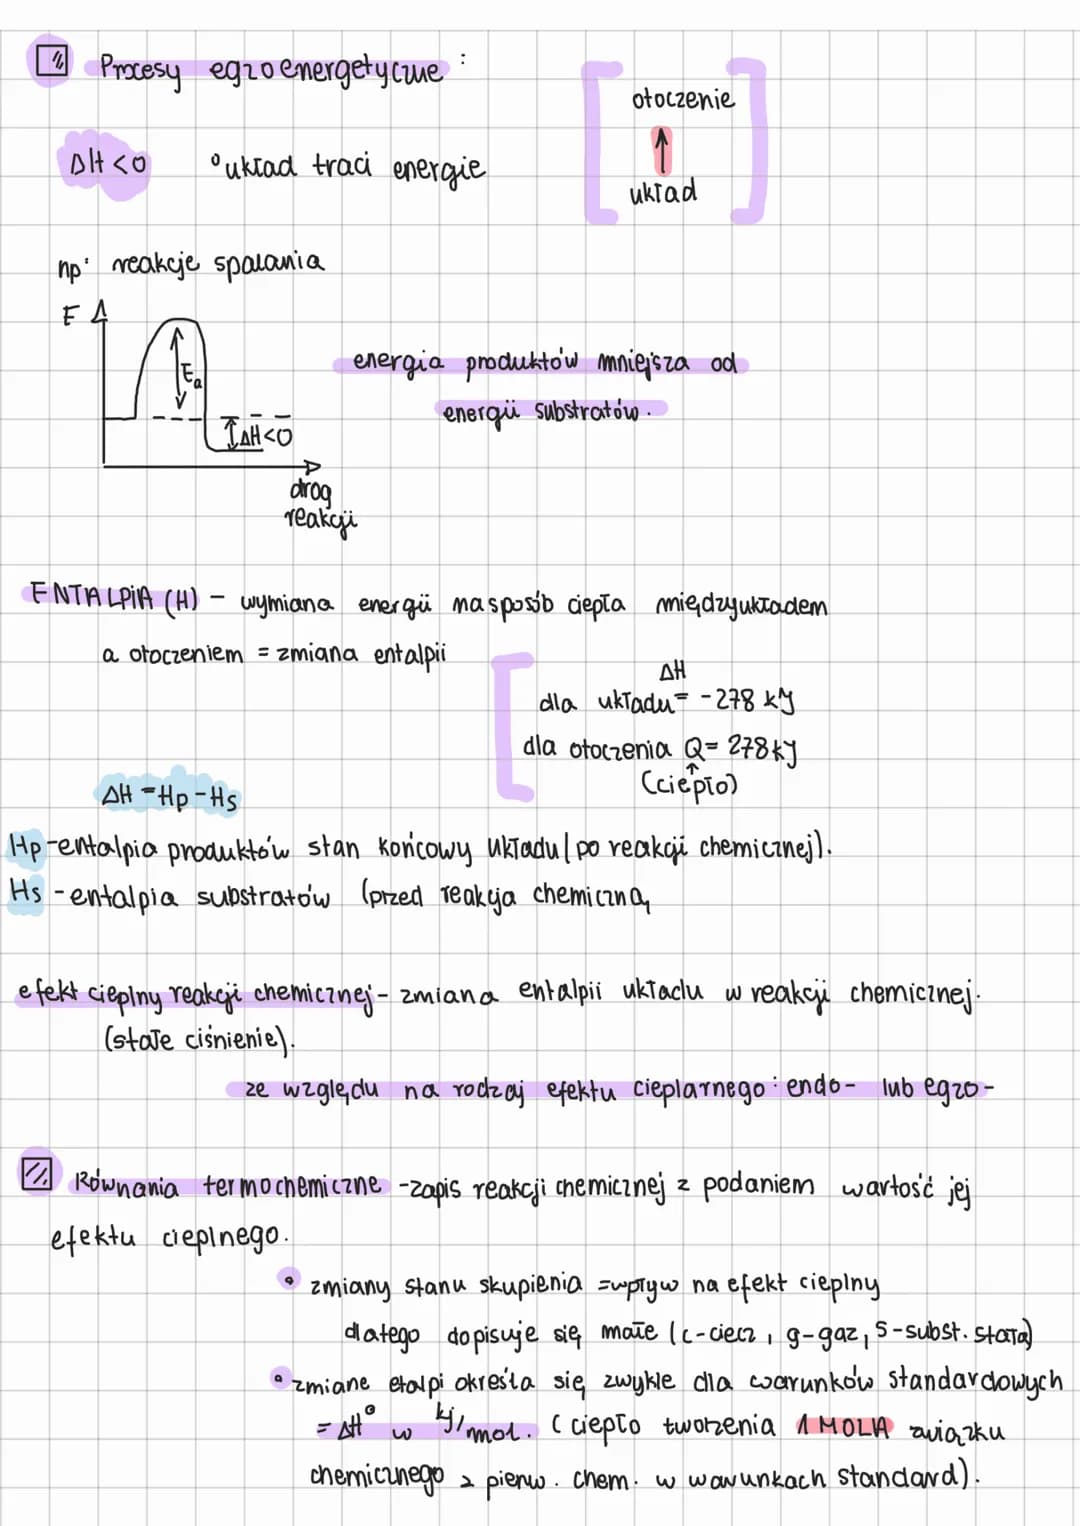 Procesy egzoenergetyczne :
otoczenie
ΔH <0 °układ traci energie
układ
np: reakcje spalania
E
Ea
energia produktów mniejsza od
energii substratów.
ΔH<0
drog
reakcji
ENTALPIA (H) - wymiana energii na sposób ciepła między układem
a otoczeniem = zmiana entalpii
ΔH
dla układu = -278 kJ
dla otoczenia Q= 278kJ
(ciepło)
ΔH = Hp - Hs
Hp -entalpia produktów stan końcowy układu (po reakcji chemicznej).
Hs -entalpia substratów (przed reakcja chemiczną
efekt cieplny reakcji chemicznej - zmiana entalpii układu w reakcji chemicznej.
(stałe ciśnienie).
ze względu na rodzaj efektu cieplarnego : endo- lub egzo-
Równania termochemiczne -zapis reakcji chemicznej z podaniem wartość jej
efektu cieplnego.
• zmiany stanu skupienia =wpływ na efekt cieplny
dlatego dopisuje się małe (c-ciecz, g-gaz, s-subst. stała)
• zmiane etalpi określa się zwykle dla warunków standardowych
= ΔH° w kj/mol. (ciepło tworzenia 1 MOLA związku
chemicznego z pierw. chem. w warunkach standard).